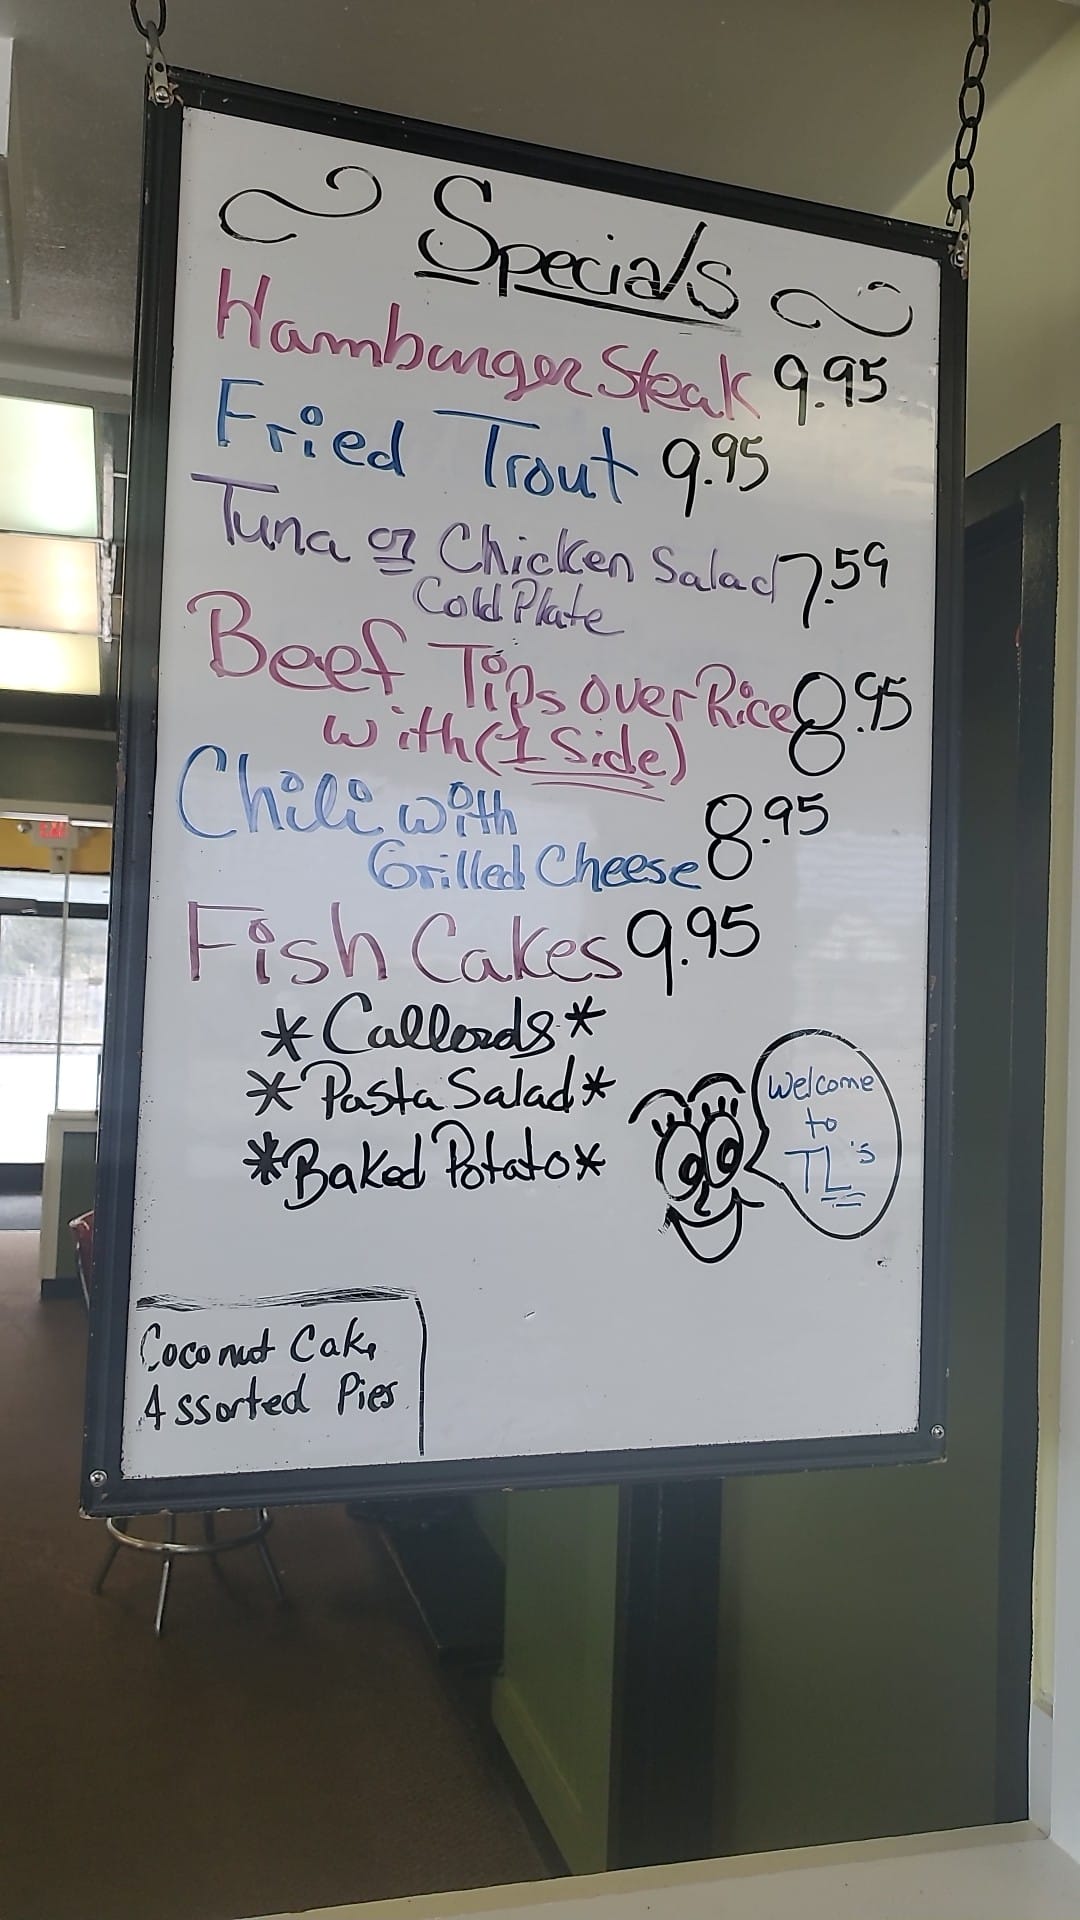 Specials
Hamburger Steak 9.95
Fried Trout 9.95
Tuna or Chicken Salad 7.59
Cold Plate
Beef Tips over Rice 8.95
with (1 Side)
Chili with
Grilled Cheese 8.95
Fish Cakes 9.95
*Callords*
*Pasta Salad*
*Baked Potato*
Welcome
to
TL's
Coconut Cake
Assorted Pies
EXIT